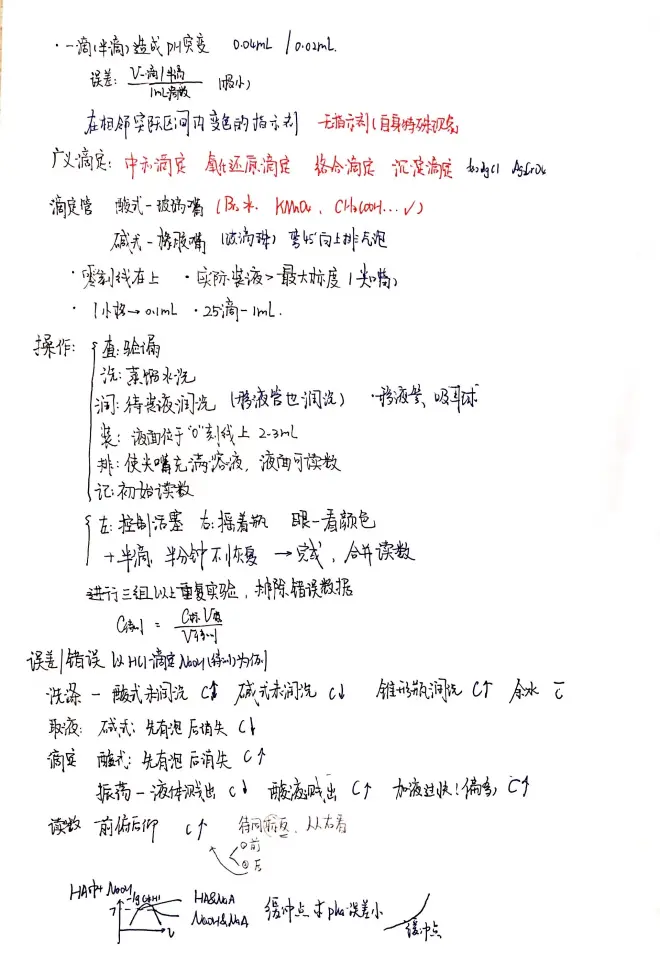 ·一滴(半滴)造成pH突变 0.04mL / 0.02mL.
误差: V一滴/半滴 / 1mL滴数 (极小)
在相邻实际区间内变色的指示剂 无指示剂(自身特殊现象)
广义滴定: 中和滴定 氧化还原滴定 络合滴定 沉淀滴定 如AgCl Ag2CrO4
滴定管 酸式-玻璃嘴 (Br2水. KMnO4、CH3COOH...✓)
碱式-橡胶嘴 (玻璃珠) 弯45°向上排气泡
·零刻线在上 ·实际装液>最大标度(尖嘴)
·1小格→0.1mL ·25滴-1mL.
操作: 查:验漏
洗:蒸馏水洗
润:待装液润洗 (移液管也润洗) ·移液管、吸耳球
装: 液面位于"0"刻线上 2-3mL
排:使尖嘴充满溶液, 液面可读数
记:初始读数
左:控制活塞 右:摇着瓶 眼-看颜色
+半滴, 半分钟不恢复 → 完成, 合并读数
进行三组以上重复实验, 排除错误数据
C待测 = C标V标 / V待测
误差/错误 以HCl滴定NaOH(待测)为例
洗涤-酸式未润洗 C↑ 碱式未润洗 C↓ 锥形瓶润洗 C↑ 余水 C̄
取液: 碱式: 先有泡后消失 C↓
滴定 酸式: 先有泡后消失 C↑
振荡-液体溅出 C↓ 酸液溅出 C↑ 加液过快!偏多, C↑
读数 前俯后仰 C↑ 从右看
①前
②后
HA中+NaOH
HA&NaA 缓冲点 求pka误差小
NaOH&NaA
V
缓冲点